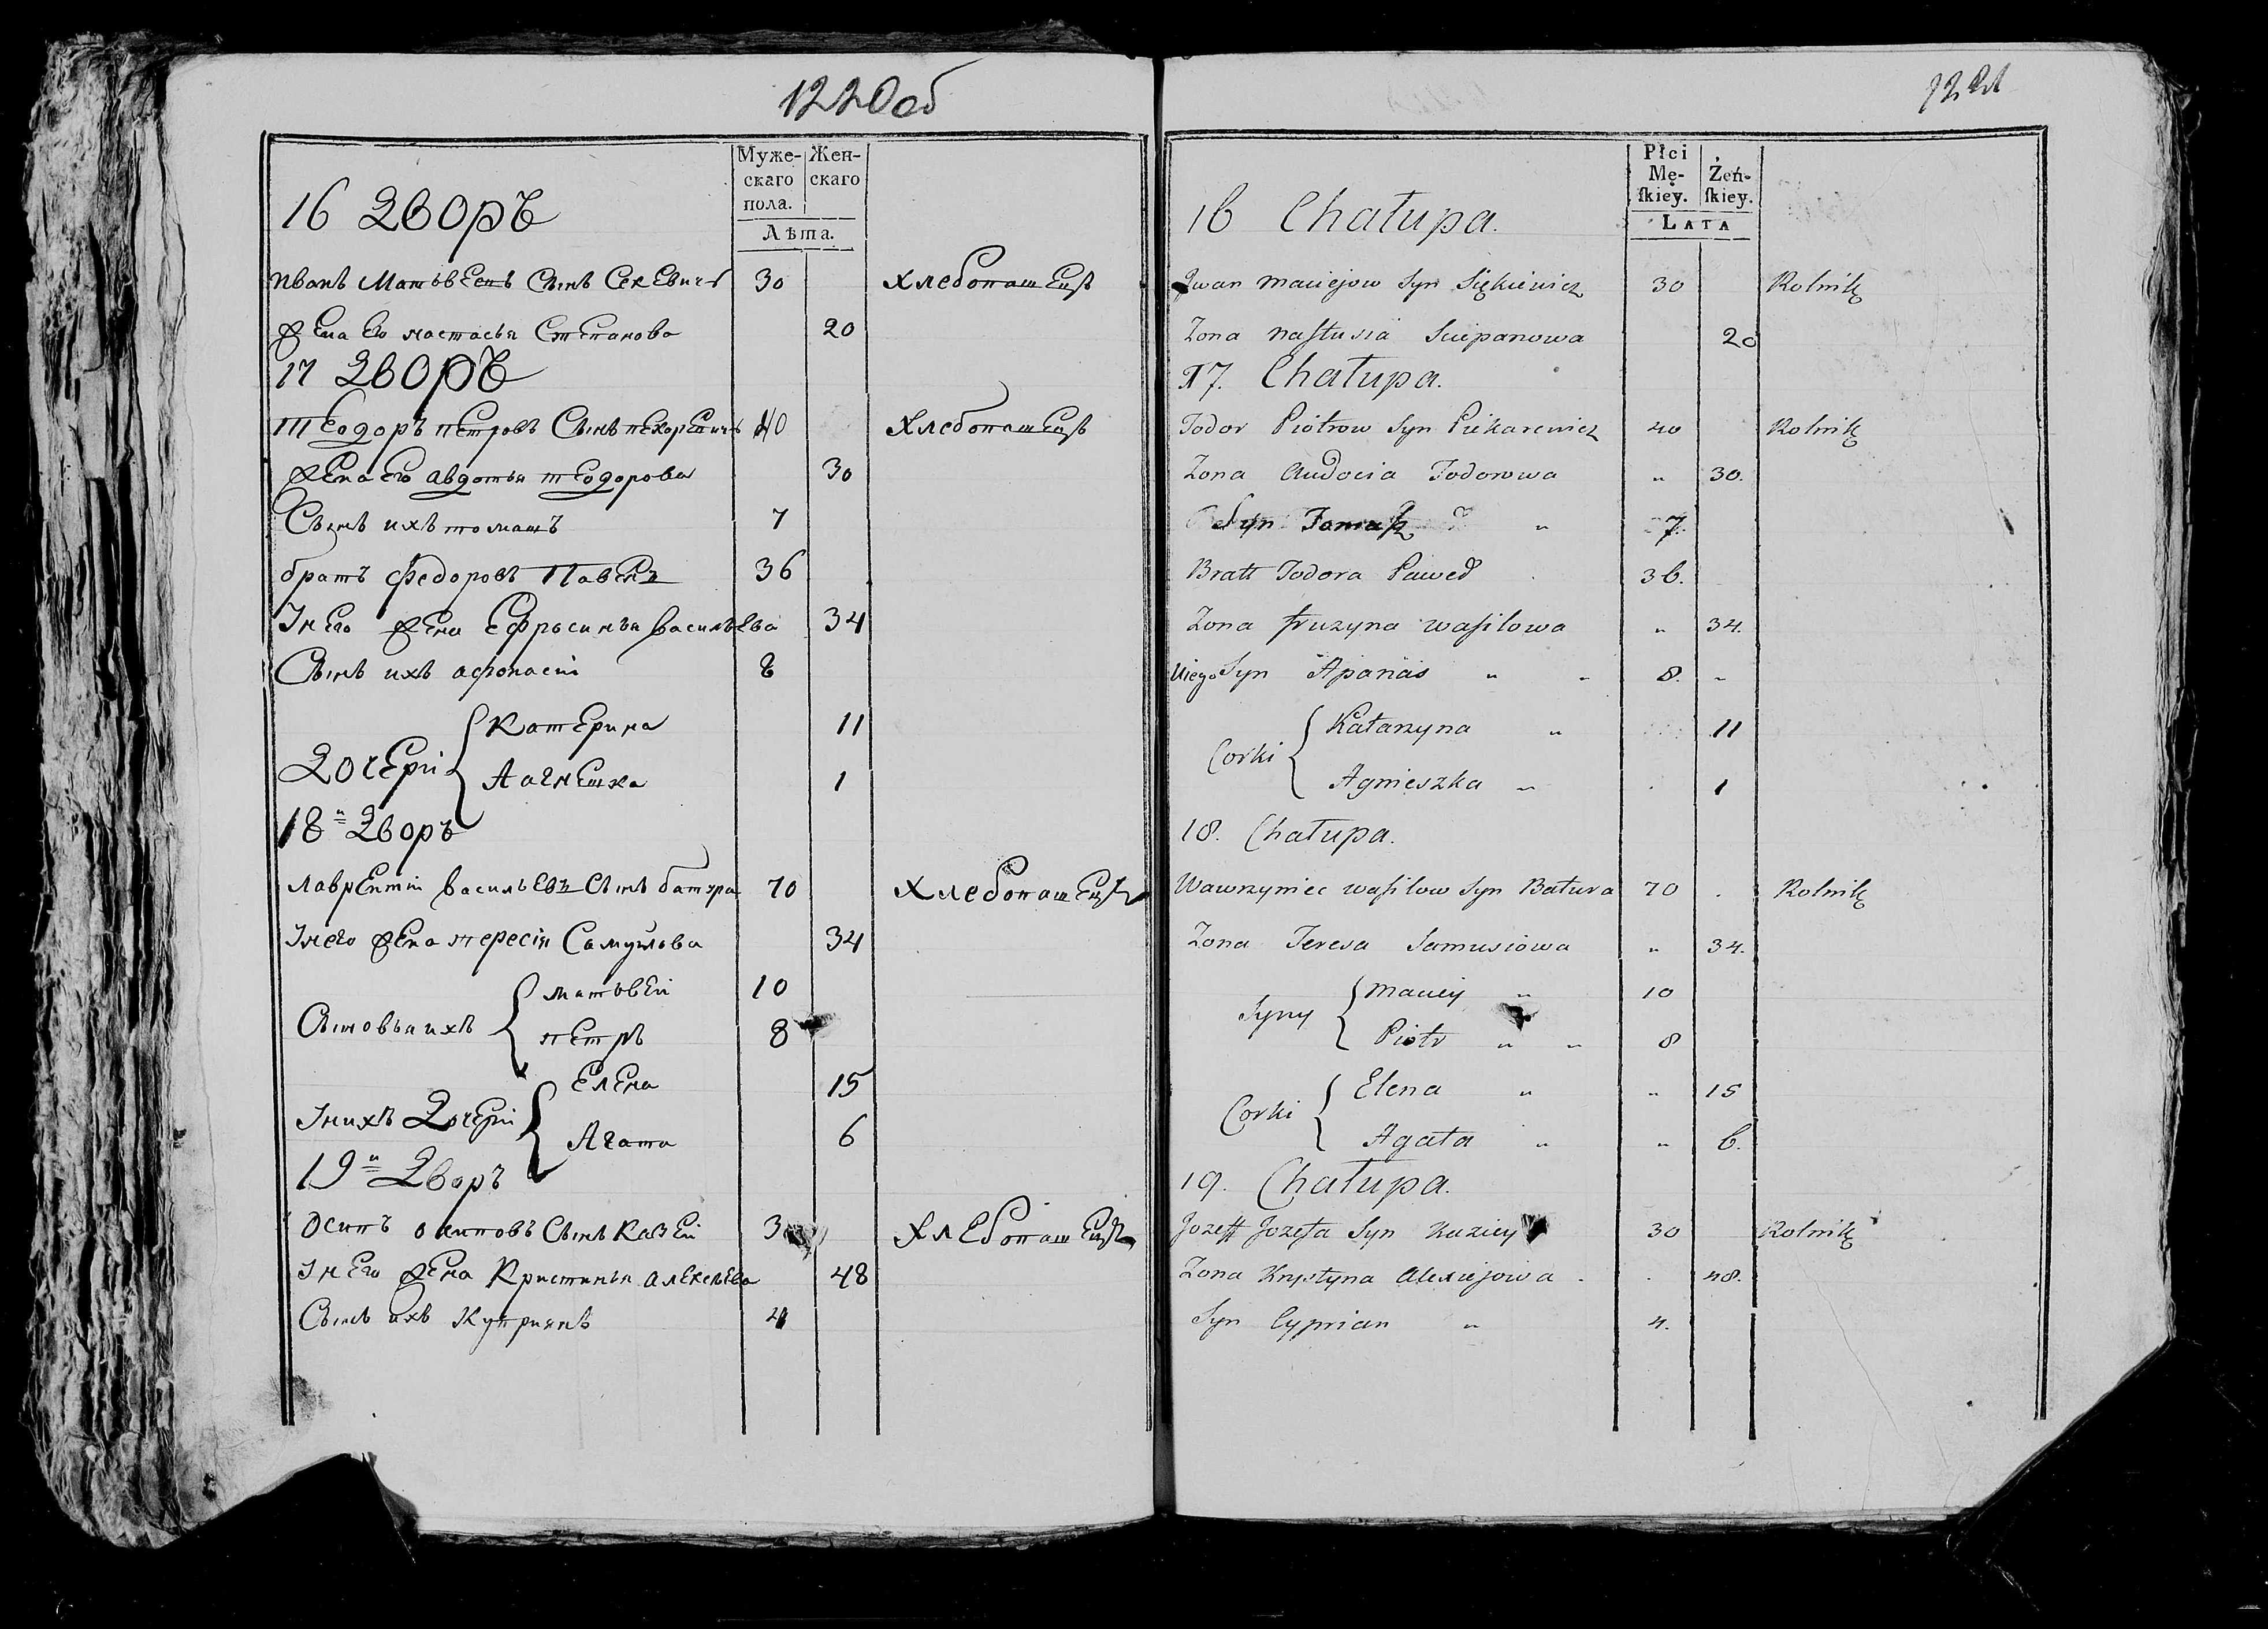 1220об
Муже-
скаго
пола.
Жен-
скаго
Лѣта.
16 Дворъ
Иванъ Матвѣевъ Сынъ Секевичъ 30 хлебопашецъ
Жена Ево Настасья Степанова 20
17 Дворъ
Теодоръ Петровъ Сынъ Пекоревичъ 40 Хлебопашецъ
Жена Его Авдотья Теодорова 30
Сынъ ихъ Томашъ 7
братъ Федоровъ Павелъ 36
У него Жена Ефросинья Васильева 34
Сынъ ихъ Афонасій 8
Дочери Катерина 11
Аагнешка 1
18й Дворъ
Лаврентій Васильевъ Сынъ батура 70 Хлебопашецъ
У него Жена тересія Самуйлова 34
Сыновья ихъ матвей 10
петръ 8
У нихъ Дочери Елена 15
Агата 6
19й Дворъ
Осипъ Осиповъ Сынъ Казей 30 Хлебопашецъ
У него Жена Кристинья Алексѣева 48
Сынъ ихъ Куприянъ 4
1221
Płci
Mę-
ſkiey.
Żeń-
ſkiey.
LATA
16 Chałupa.
Jwan Maciejow Syn Siękiewicz 30 Rolnik
Zona Naſtusia Sciepanowa 20
17. Chałupa.
Todor Piotrow Syn Piekarewicz 40 Rolnik
Zona Audocia Todorowa " 30.
Syn Tomaſz " 7.
Bratt Todora Paweł 36.
Zona Fruzyna Waſilowa " 34.
Uiego Syn Apanas " " 8. "
Corki Katarzyna " 11
Agnieszka " 1
18. Chałupa.
Wawrzyniec Waſilow Syn Batura 70 Rolnik
Zona Teresa Samusiowa " 34.
Syny Maciey " 10
Piotr " " 8
Corki Elena " " 15
Agata " " 6.
19. Chałupa.
Jozeff Jozefa Syn Kaziey 30 Rolnik
Zona Krystyna Alexiejowa 48.
Syn Cyprian " 4.